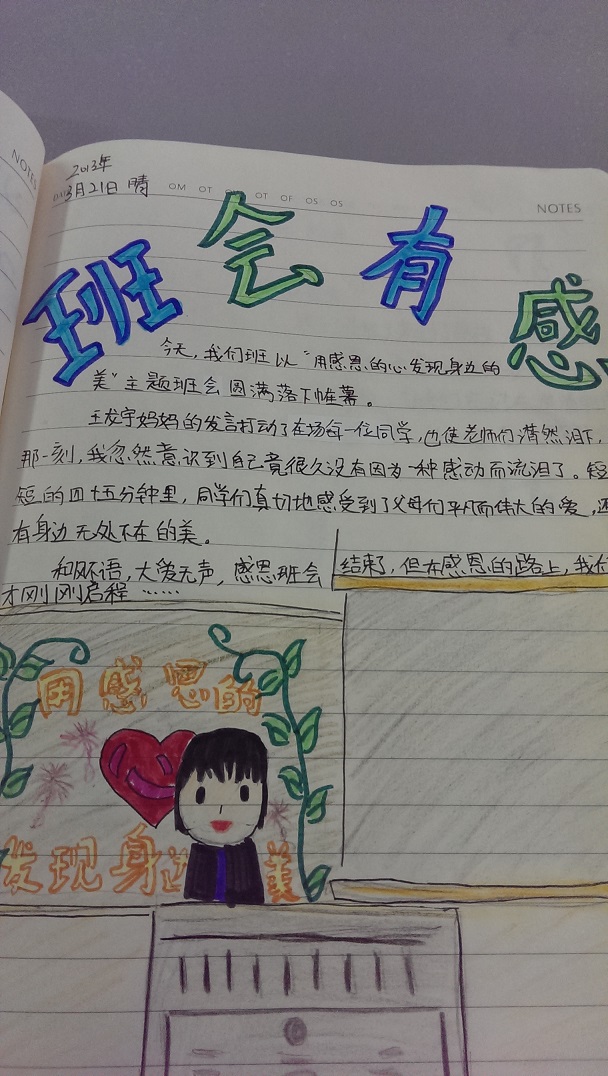 NOTES
2013年
3月21日 晴
NOTES
班会有感
今天，我们班以“用感恩的心发现身边的
美”主题班会圆满落下帷幕。
王龙宇妈妈的发言打动了在场每一位同学，也使老师们潸然泪下，
那一刻，我忽然意识到自己竟很久没有因为一种感动而流泪了。短
短的四十五分钟里，同学们真切地感受到了父母们平凡而伟大的爱，还
有身边无处不在的美。
和风不语，大爱无声，感恩班会结束了，但在感恩的路上，我们
才刚刚启程……
用感恩的
发现身边 美